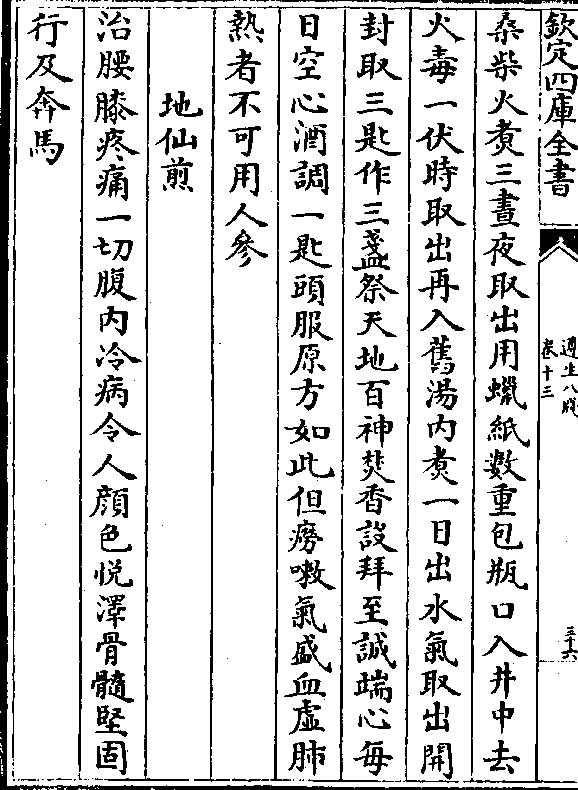 欽定四庫全書
遵生八牋
卷十三
三十六
桑柴火煮三晝夜取出用蠟紙數重包瓶口入井中去
火毒一伏時取出再入舊湯内煮一日出水氣取出開
封取三匙作三盞祭天地百神焚香設拜至誠端心每
日空心酒調一匙頭服原方如此但癆嗽氣盛血虚肺
熱者不可用人參
地仙煎
治腰膝疼痛一切腹内冷病令人顔色悦澤骨髓堅固
行及奔馬